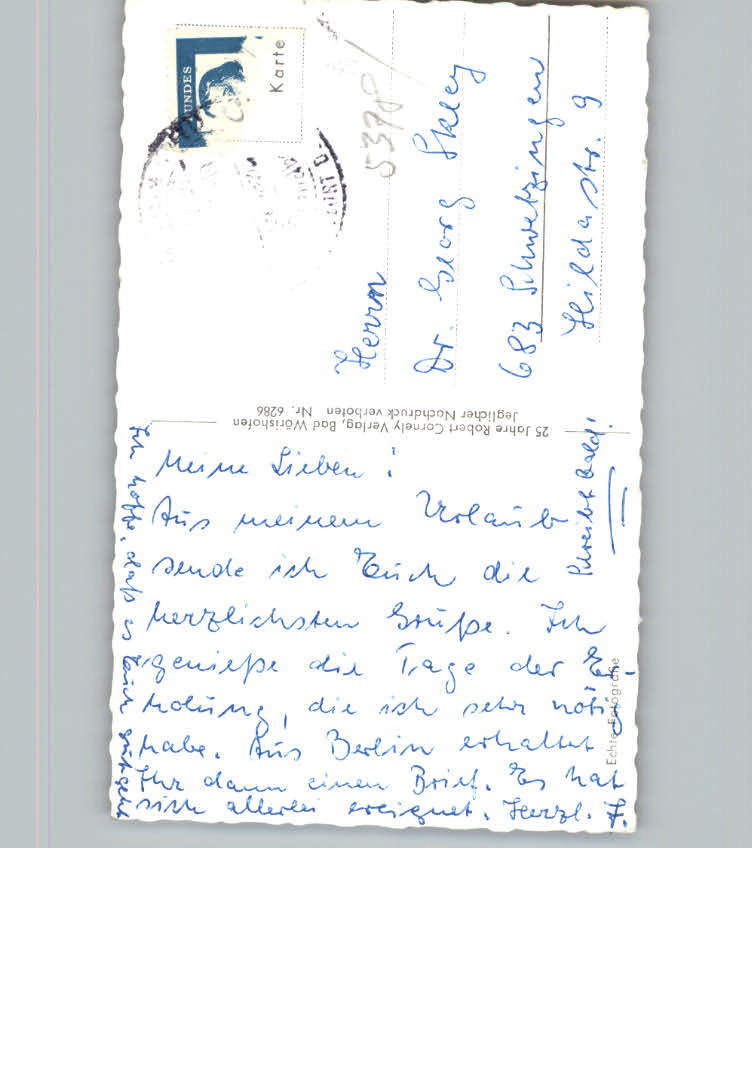 Meine Lieben!
Aus meinem Urlaub
sende ich Euch die
herzlichsten Grüße. Ich
genieße die Tage der Er-
holung, die ich sehr nötig
habe. Aus Berlin erhaltet
Ihr dann einen Brief. Es hat
sich allerlei ereignet. Herzl. F.
Ich hoffe, daß es Euch gut geht
Schreibt bald!
Herrn
Dr. Georg Skley
683 Schwetzingen
Hildastr. 9
5378
Karte
UNDES
25 Jahre Robert Cornely Verlag, Bad Wörishofen
Jeglicher Nachdruck verboten Nr. 6286
Echte Fotografie